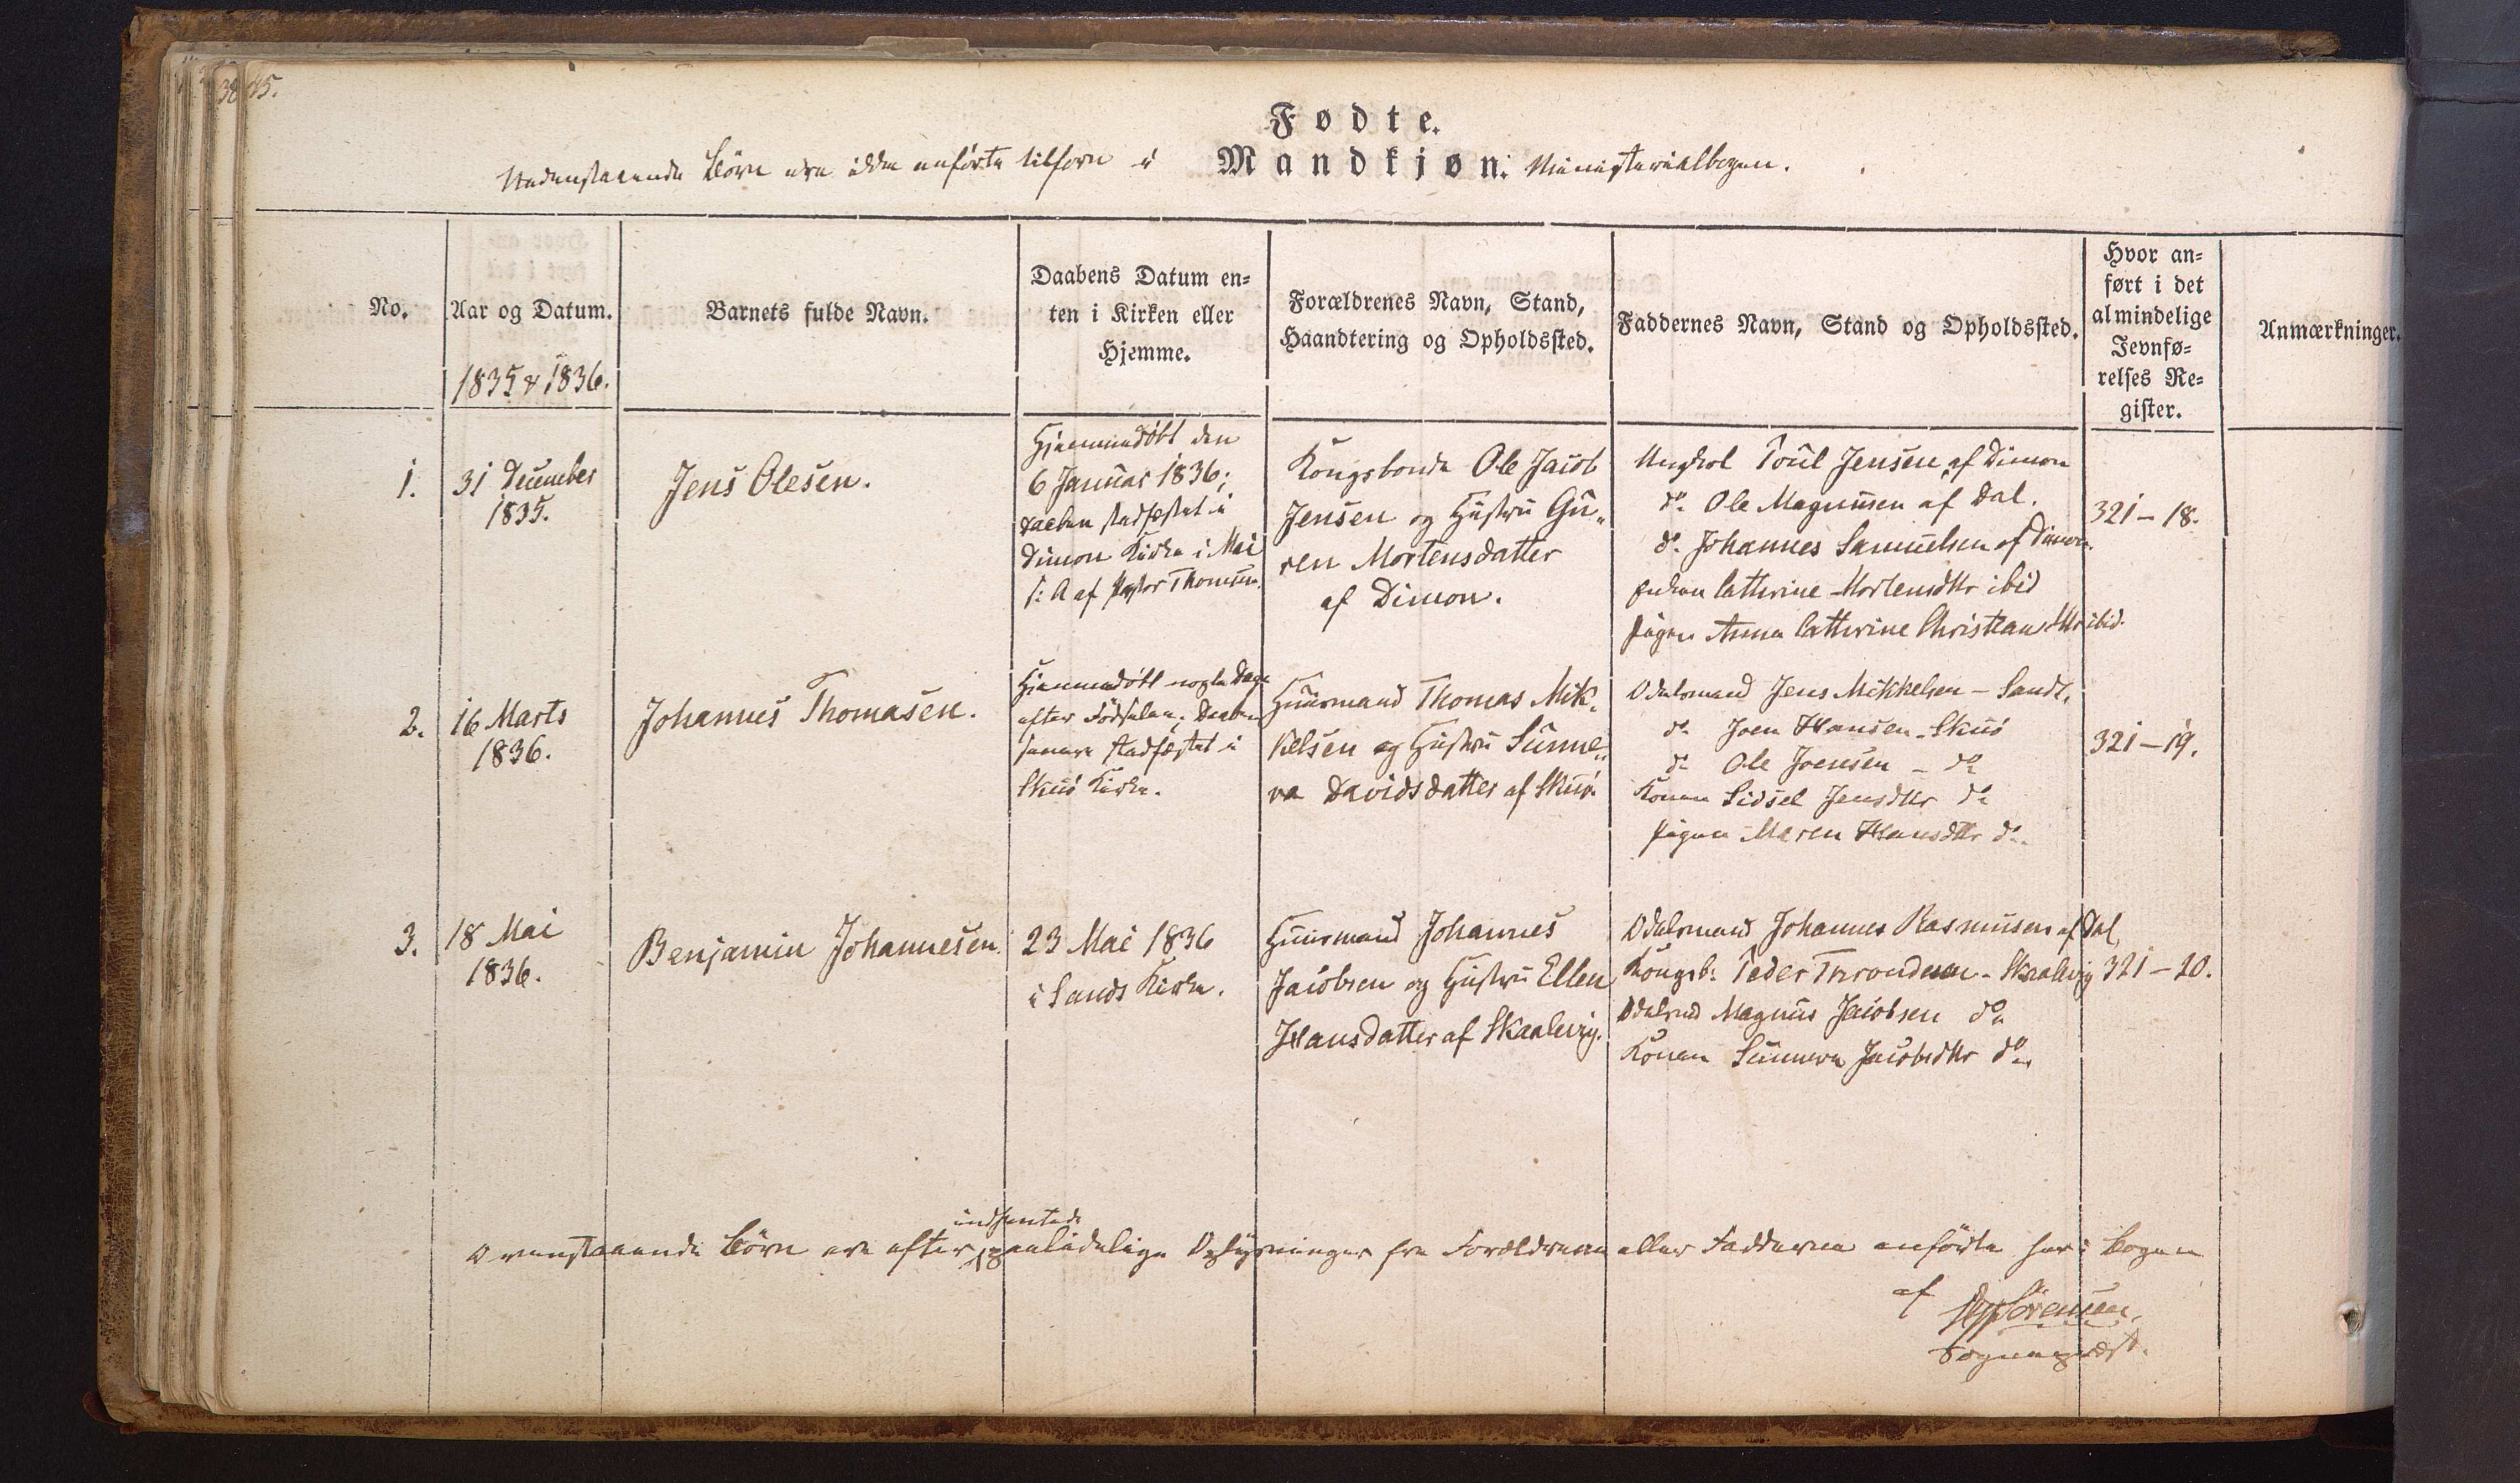 45.
Fødte.
Nedenstaaende Börn ere ikke anförte tilforn i Mandkjøn. Ministerialbogen.
No.
Aar og Datum.
1835 & 1836.
Barnets fulde Navn.
Daabens Datum en=
ten i Kirken eller
Hjemme.
Forældrenes Navn, Stand,
Haandtering og Opholdssted.
Faddernes Navn, Stand og Opholdssted.
Hvor an=
ført i det
almindelige
Jevnfø=
relses Re=
gister.
Anmærkninger.
1.
31 December
1835.
Jens Olesen.
Hjemmedöbt den
6 Januar 1836;
Daaben stadfæstet i
Dimon Kirke i Mai
s: A af Pastor Thomsen.
Kongsbonde Ole Jacob
Jensen og Hustru Gu„
ren Mortensdatter
af Dimon.
Ungkarl Poul Jensen af Dimon
do. Ole Magnussen af Dal.
do. Johannes Samuelsen af Dimon.
Enken Catherine Mortensdttr ibid
Pigen Anna Catherine Christiansdttr ibid.
321 - 18.
2.
16 Marts
1836.
Johannes Thomasen.
Hjemmedöbt nogle Dage
efter Födselen; Daaben
senere stadfæstet i
Skuö Kirke.
Huusmand Thomas Mik„
kelsen og Hustru Sunne„
va Davidsdatter af Skuö.
Odelsmand Jens Mikkelsen - Sand.
do Joen Hansen - Skuö
do Ole Joensen - do
Konen Sidsel Jensdttr do
Pigen Maren Hansdttr do.
321 - 19.
3.
18 Mai
1836.
Benjamin Johannesen.
23 Mai 1836
i Sands Kirke.
Huusmand Johannes
Jacobsen og Hustru Ellen
Hansdatter af Skaalevig.
Odelsmand Johannes Rasmusen af Dal
Kongsb: Peder Throndesen - Skaalevig
Odelsmd Magnus Jacobsen do
Konen Sunneva Jacobsdttr do.
321 - 20.
indhentede
Ovenstaaende Börn ere efter paalidelige Oplysninger fra Forældrene eller Fadderne anförte her i Bogen
af Sörensen.
Sognepræst.